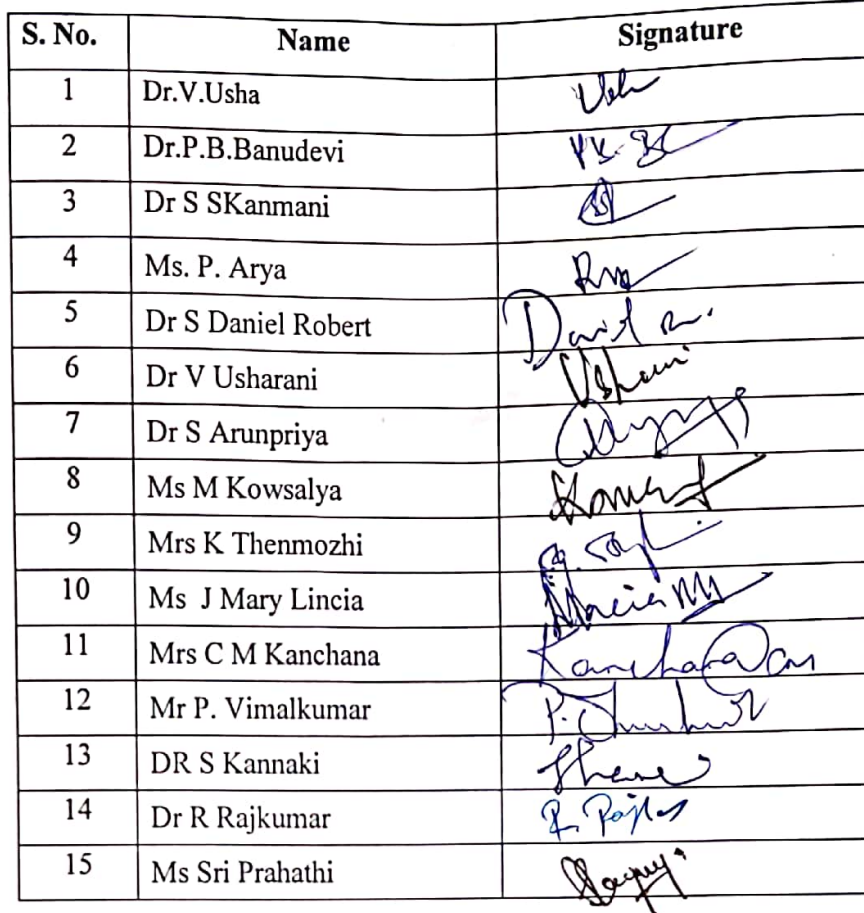 S. No. Name Signature
1 Dr.V.Usha
2 Dr.P.B.Banudevi
3 Dr S SKanmani
4 Ms. P. Arya
5 Dr S Daniel Robert
6 Dr V Usharani
7 Dr S Arunpriya
8 Ms M Kowsalya
9 Mrs K Thenmozhi
10 Ms J Mary Lincia
11 Mrs C M Kanchana
12 Mr P. Vimalkumar
13 DR S Kannaki
14 Dr R Rajkumar
15 Ms Sri Prahathi